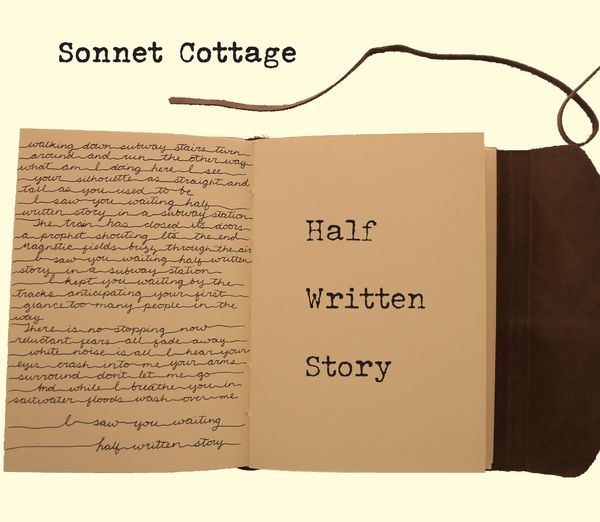 Sonnet Cottage
walking down subway stairs turn
around and run the other way
what am I doing here I see
your silhouette as straight and
tall as you used to be
I saw you waiting half
written story in a subway station
The train has closed its doors
a prophet shouting Its the end
Magnetic fields buzz through the air
I saw you waiting half written
story in a subway station
I kept you waiting by the
tracks anticipating your first
glance too many people in the
way
There is no stopping now
reluctant fears all fade away
white noise is all I hear your
eyes crash into me your arms
surround dont let me go
And while I breathe you in
saltwater floods wash over me
I saw you waiting
half written story
Half
Written
Story